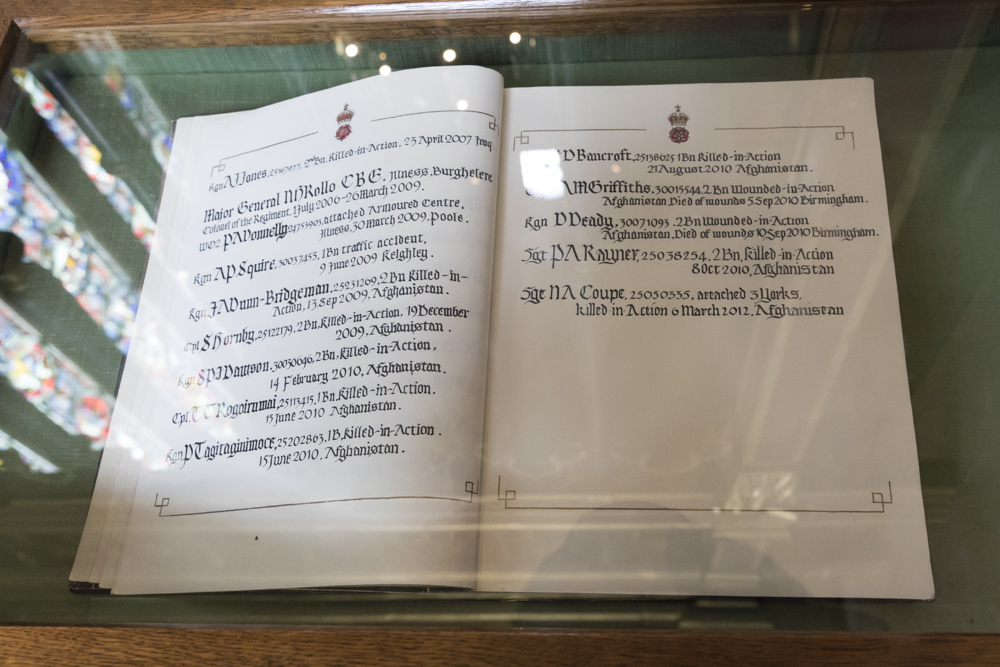 Kgn A J Jones, 25197977, 2nd Bn, Killed-in-Action, 23 April 2007 Iraq
Major General N J Rollo C B E, Illness, Burghclere
Colonel of the Regiment, 1 July 2006 - 26 March 2009.
WO2. P A Donnelly 24753905, attached Armoured Centre,
Illness, 30 March 2009, Poole.
Kgn A P Squire, 30037455, 1 Bn traffic accident,
9 June 2009 Keighley.
Kgn J A Dunn-Bridgeman, 25231269, 2 Bn Killed-in-
Action, 13 Sep 2009, Afghanistan.
Cpl S Hornby, 25122179, 2 Bn, Killed-in-Action, 19 December
2009, Afghanistan.
Kgn S P J Dawson, 30030646, 2 Bn, Killed-in-Action,
14 February 2010, Afghanistan.
Cpl. T C Rogoiruwai, 25113415, 1 Bn, Killed-in-Action.
15 June 2010 Afghanistan.
Kgn P Tagitaginimoce, 25202863, 1 B, Killed-in-Action.
15 June 2010, Afghanistan.
D Bancroft, 25138625 1 Bn Killed-in-Action
21 August 2010 Afghanistan.
A M Griffiths, 30015544, 2 Bn Wounded-in-Action
Afghanistan, Died of wounds 5 Sep 2010 Birmingham.
Kgn D Deady, 30071093, 2 Bn Wounded-in-Action
Afghanistan, Died of wounds 10 Sep 2010 Birmingham.
Sgt P A Rayner, 25038254, 2 Bn, Killed-in-Action
8 Oct 2010, Afghanistan
Sgt N A Coupe, 25050335, attached 3 Yorks,
killed in Action 6 March 2012, Afghanistan